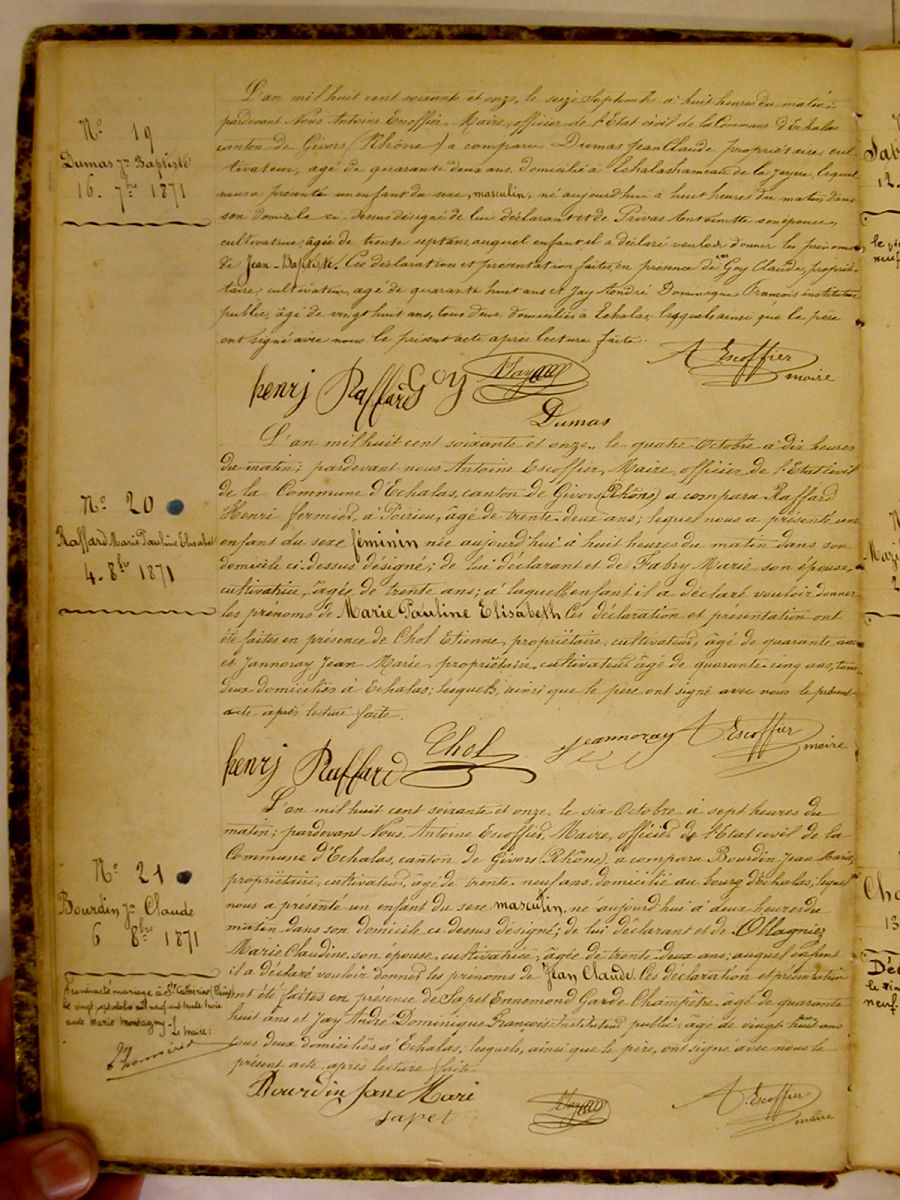 N° 19
Dumas Jn Baptiste
16. 7bre 1871
L'an mil huit cent soixante et onze, le seize Septembre à huit heures du matin;
pardevant Nous Antoine Escoffier, Maire, officier de l'Etat civil de la Commune d'Echalas
canton de Givors (Rhône) a comparu Dumas Jean Claude propriétaire, cul-
tivateur, agé de quarante deux ans, domicilié à Echalas hameau de la, lequel
nous a présenté un enfant du sexe masculin, né aujourd'hui à huit heures du matin dans
son domicile ci-dessus désigné de lui déclarant et de Privas Antoinette son épouse,
cultivatrice, âgée de trente sept ans, auquel enfant il a déclaré vouloir donner les prénoms
de Jean-Baptiste. Ces déclaration et présentation faites en présence de Goy Claude, proprié-
taire, cultivateur, agé de quarante huit ans et Jay André Dominique François instituteur
public, âgé de vingt huit ans, tous deux domiciliés à Echalas; lesquels ainsi que le père
ont signé avec nous le présent acte après lecture faite.
A Escoffier
maire
henrj Raffard Goy
Dumas
N° 20
Raffard Marie Pauline Elisabeth
4. 8bre 1871
L'an mil huit cent soixante et onze, le quatre Octobre à dix heures
du matin; pardevant nous Antoine Escoffier, Maire, officier de l'Etat civil
de la Commune d'Echalas, canton de Givors (Rhône) a comparu Raffard
Henri fermier, à Poirieu, âgé de trente-deux ans; lequel nous a présenté un
enfant du sexe féminin née aujourd'hui à huit heures du matin dans son
domicile ci-dessus désigné; de lui déclarant et de Fabry Marie, son épouse,
cultivatrice, âgée de trente ans; à laquelle enfant il a déclaré vouloir donner
les prénoms de Marie Pauline Elisabeth Ces déclaration et présentation ont
été faites en présence de Chol Etienne, propriétaire, cultivateur, âgé de quarante ans
et Jannoray Jean Marie, propriétaire, cultivateur âgé de quarante-cinq ans, tous
deux domiciliés à Echalas; lesquels, ainsi que le père ont signé avec nous le présent
acte après lecture faite.
henrj Raffard Chol Jeannoray A Escoffier
maire
N° 21
Bourdin Jn Claude
6 8bre 1871
A contracté mariage à Ste Catherine (Rhône)
le vingt septembre mil neuf cent trente trois
avec Marie Montagny - Le Maire:
L'an mil huit cent soixante et onze, le six Octobre à sept heures du
matin; pardevant Nous Antoine Escoffier, Maire, officier de l'Etat civil de la
Commune d'Echalas, canton de Givors (Rhône), a comparu Bourdin Jean Marie,
propriétaire, cultivateur, âgé de trente-neuf ans, domicilié au bourg d'échalas; lequel
nous a présenté un enfant du sexe masculin, né aujourd'hui à deux heures du
matin dans son domicile ci-dessus désigné; de lui déclarant et de Ollagnier
Marie Claudine, son épouse, cultivatrice, âgée de trente-deux ans; auquel enfant
il a déclaré vouloir donner les prénoms de Jean Claude. Ces déclaration et présentation
ont été faites en présence de Sapet Ennemond Garde Champêtre, agé de quarante
huit ans et Jay André Dominique François Instituteur public, âgé de vingt huit ans
tous deux domiciliés à Echalas; lesquels, ainsi que le père, ont signé avec nous le
présent acte, après lecture faite.
Bourdin Jane Mari
Sapet
A. Escoffier
maire